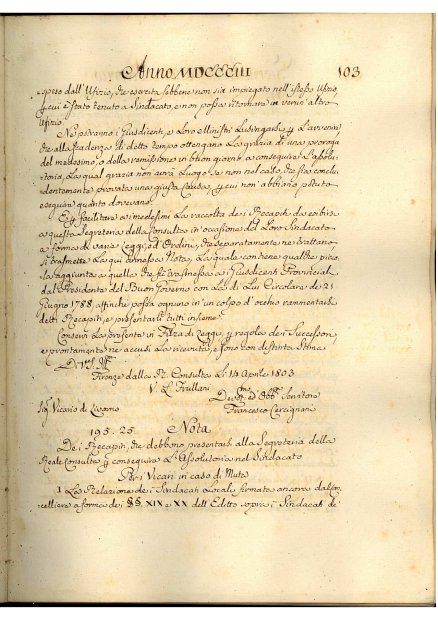 Anno MDCCCIII 103
speso dall'Ufizio, che esercita sebbene non sia impiegato nell'istesso Ufizio,
p cui è stato tenuto a Sindacato, e non possa ritornare in verun altro
Ufizio.
Ne potranno i Giusdicenti, e Loro Ministri Lusingarsi p L'avvenire
che alla scadenza di detto tempo ottengano La grazia di una proroga
del medesimo, o della remissione in buon giorno a conseguire l'assolu-
toria, La qual grazia non avrà Luogo, se non nel caso, che sia conclu-
dentemente provata una giusta Causa, p cui non abbiano potuto
eseguire quanto dovevano.
E p facilitare ai medesimi La raccolta dei Recapiti da esibirsi
a questa Segreteria della Consulta in occasione del Loro Sindacato
a forma di varie Leggi, ed Ordini, che separatamente ne trattano
si trasmette La qui annessa Nota, La quale contiene qualche picco-
la aggiunta a quella che fù trasmessa ai Giusdicenti Provinciali
dal Presidente del Buon Governo con La di Lui Circolare de 21
Giugno 1788 affinchè possa ognuno in un colpo d'occhio rammentarsi
detti Recapiti, e presentarli tutti insieme.
Conservi La presente in Filza di Leggi, p regola dei Successori
e prontamente ne accusi La ricevuta, e sono con distinta Stima
D. V. S. Ill
Firenze dalla R. Consulta Li 14 Aprile 1803
V. L. Frullani
Dev ed Obb Servitore
Sig Vicario di Livorno Francesco Cercignani
195. 25 Nota
Dei Recapiti, che debbono presentarsi alla Segreteria della
Reale Consulta p conseguire L'Assolutoria nel Sindacato
Per i Vicari in caso di Muta
1 La Relazione dei Sindacati Locali firmata ancora dal Can-
celliere a forma dei §§ XIX e XX dell'Editto sopra i Sindacati de